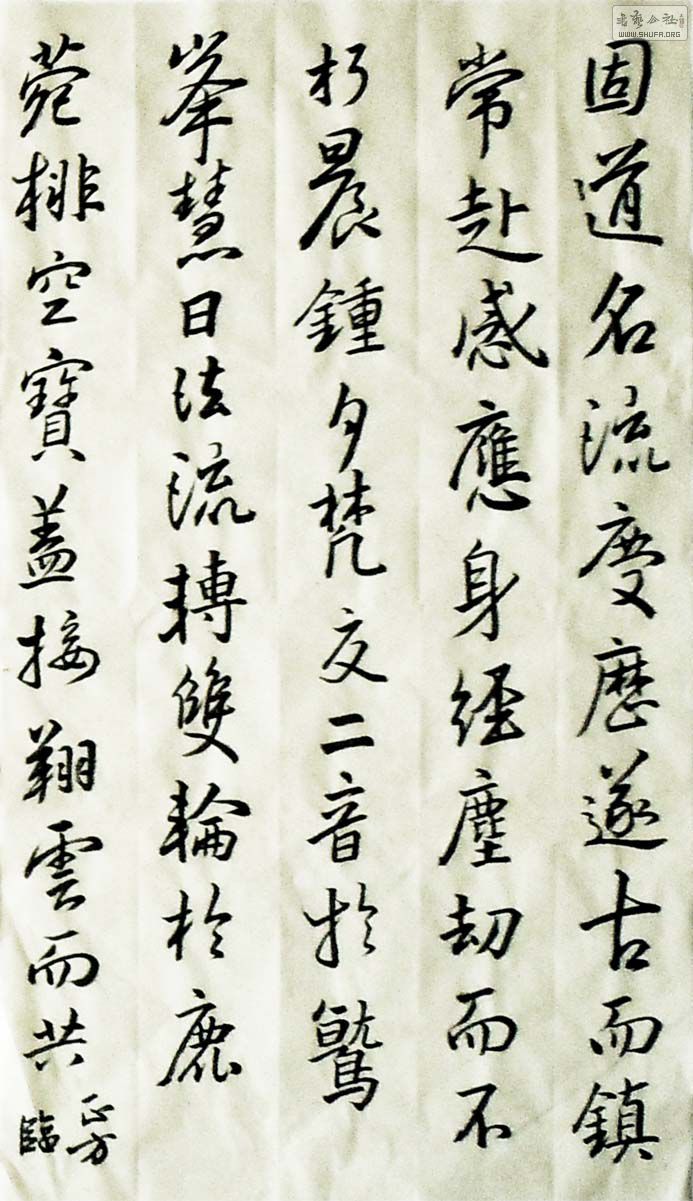 固道名流慶歷遂古而鎮
常赴感應身經塵劫而不
朽晨鍾夕梵交二音於鷲
峯慧日法流轉雙輪於鹿
菀排空寶蓋接翔雲而共
正芳
臨
书艺公社
WWW.SHUFA.ORG